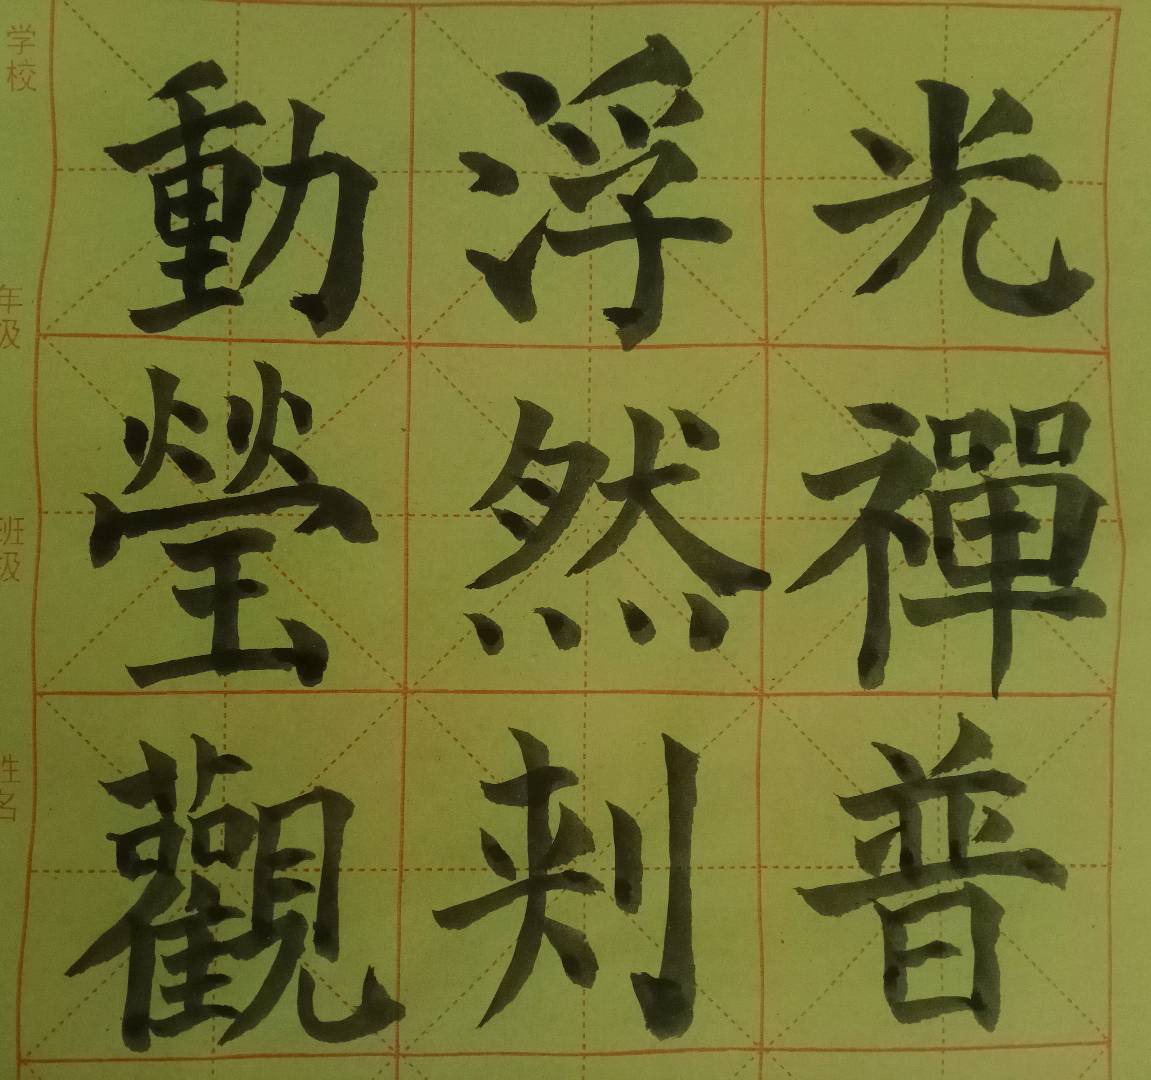 光禪普
浮然刹
動瑩觀
学校
年级
班级
姓名